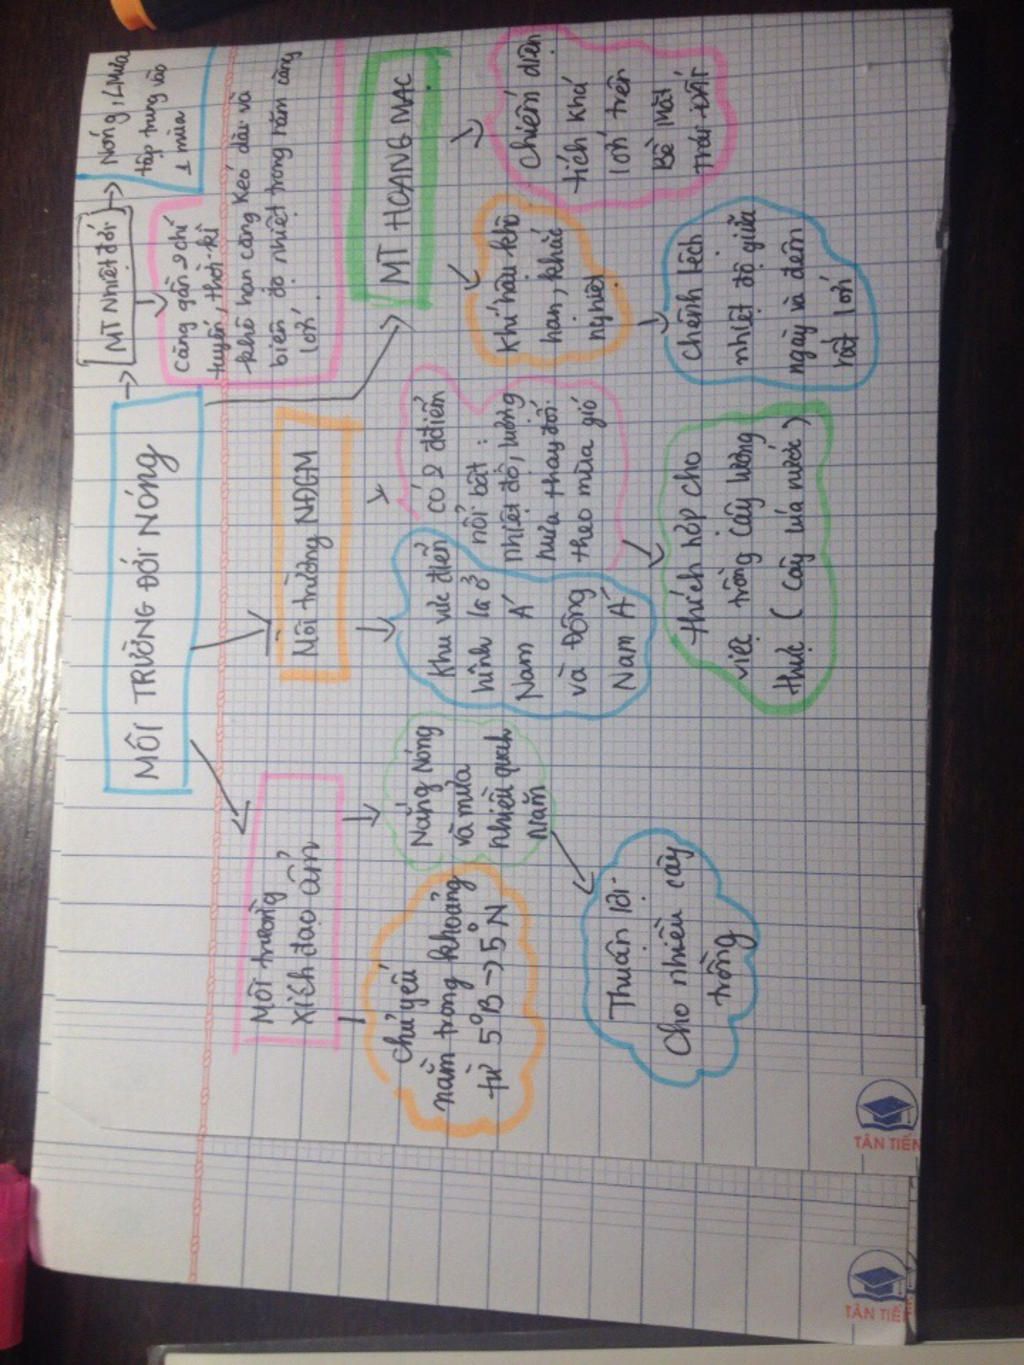 MÔI TRƯỜNG ĐỚI NÓNG
Môi trường
Xích đạo ẩm
Chủ yếu
nằm trong khoảng
từ 5°B → 5°N
Nắng nóng
và mưa
nhiều quanh
năm
Thuận lợi
Cho nhiều cây
trồng
Môi trường NĐGM
Khu vực điển
hình là ở
Nam Á
và Đông
Nam Á
có 2 đđiểm
nổi bật :
nhiệt độ, lượng
mưa thay đổi
theo mùa gió
thích hợp cho
việc trồng cây lương
thực ( cây lúa nước )
MT Nhiệt đới
Nóng, LMưa
tập trung vào
1 mùa
càng gần 2 chí
tuyến, thời kì
khô hạn càng kéo dài và
biên độ nhiệt trong năm càng
lớn.
MT HOANG MẠC
Khí hậu khô
hạn, khắc
nghiệt
Chiếm diện
tích khá
lớn trên
Bề Mặt
TRÁI ĐẤT
chênh lệch
nhiệt độ giữa
ngày và đêm
rất lớn
TÂN TIẾN
TÂN TIẾN